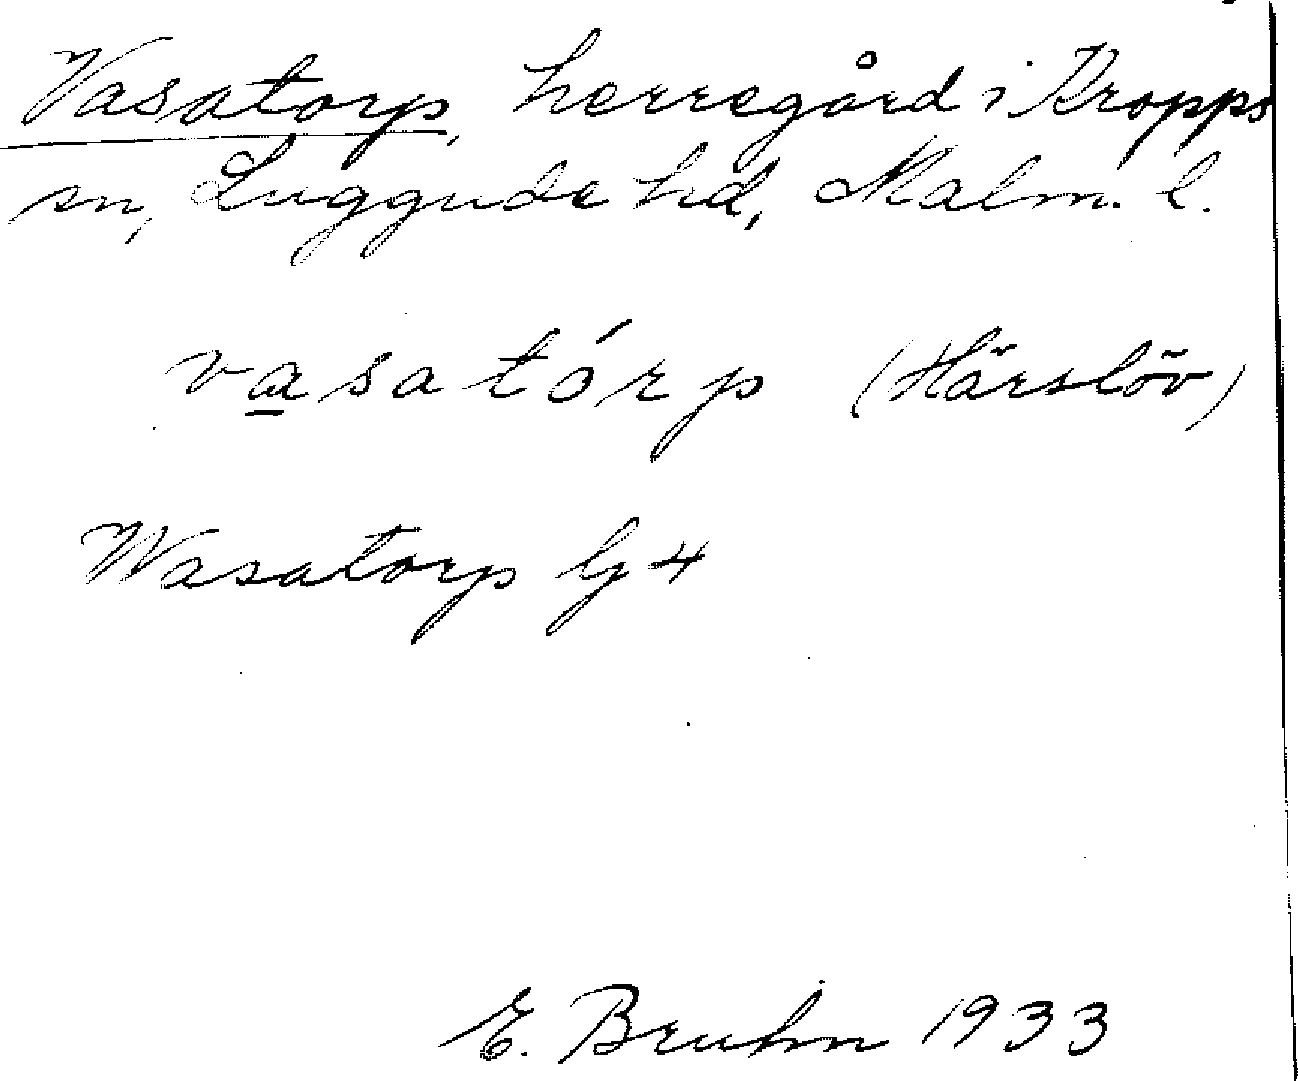 Vasatorp, herregård i Kropps
sn, Luggude hd, Malm. l.
vasatórp (Härslöv)
Wasatorp Gj 4
E. Bruhn 1933